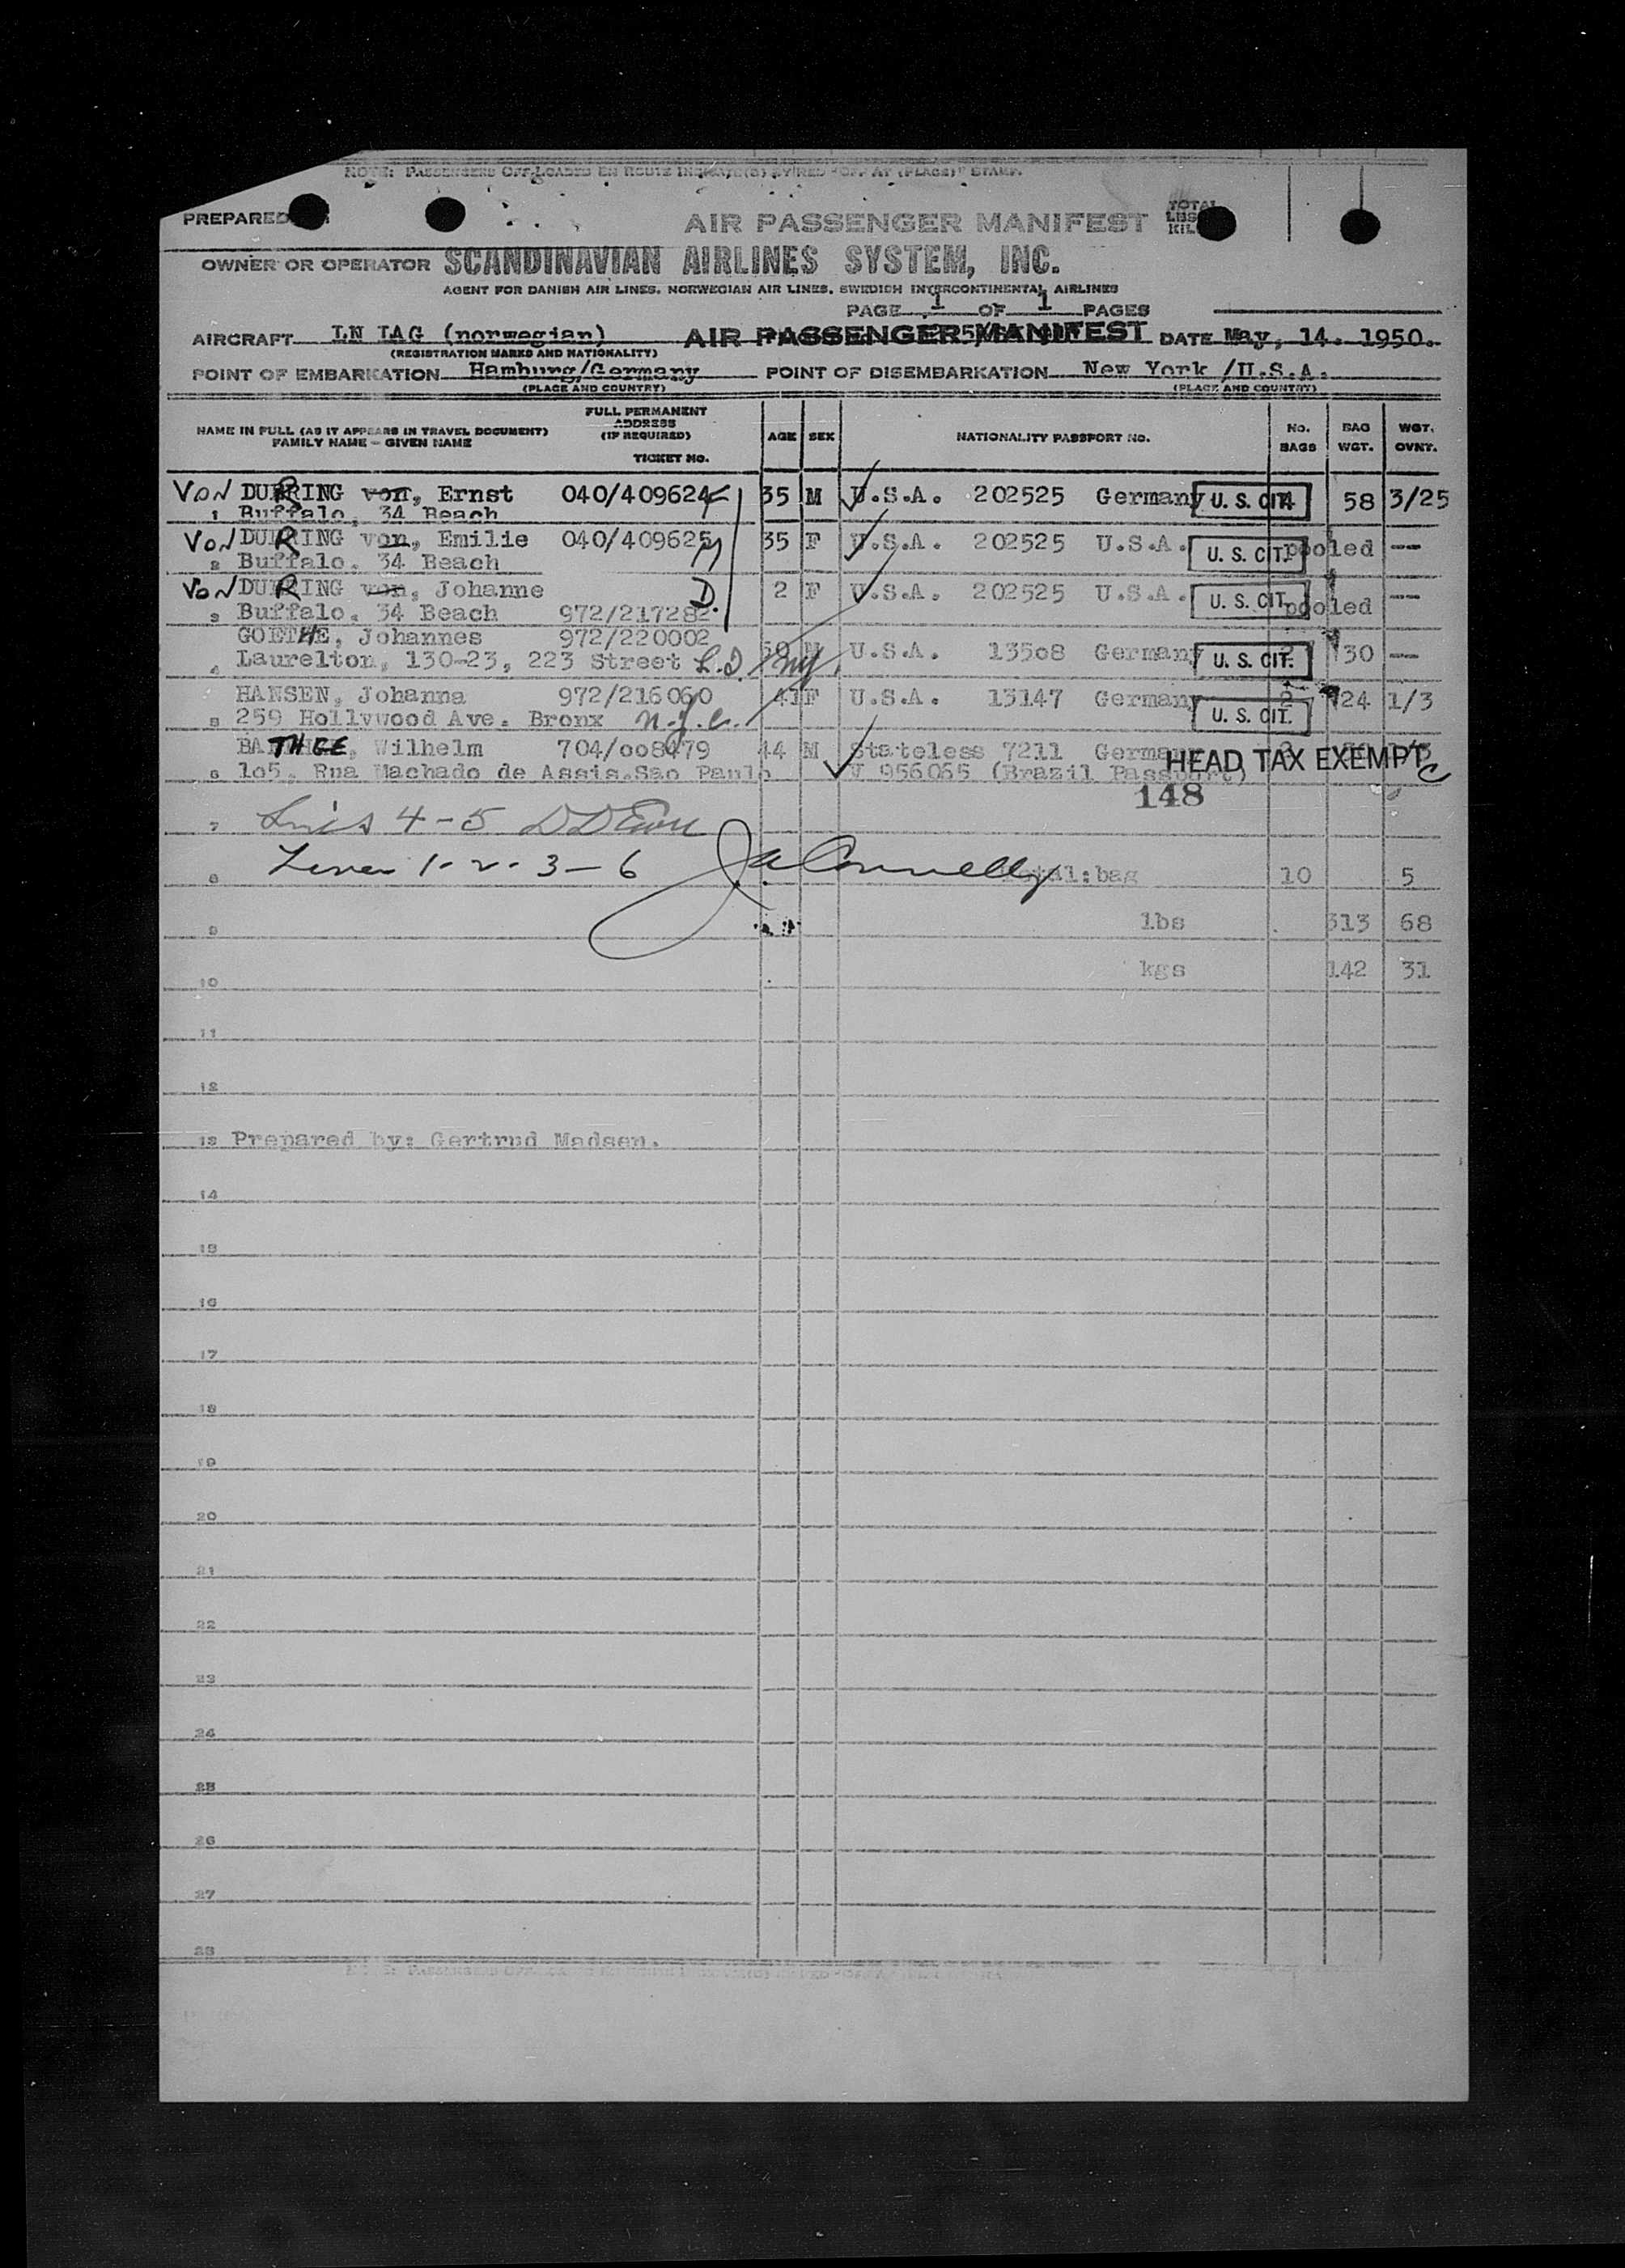 NOTE: PASSENGERS OFF-LOADED EN ROUTE INDICATE(D) BY RED "OFF AT (PLACE)" STAMP.
PREPARED
AIR PASSENGER MANIFEST
TOTAL
LBS
KIL
OWNER OR OPERATOR SCANDINAVIAN AIRLINES SYSTEM, INC.
AGENT FOR DANISH AIR LINES, NORWEGIAN AIR LINES, SWEDISH INTERCONTINENTAL AIRLINES
PAGE 1 OF 1 PAGES
AIRCRAFT LN IAG (norwegian) AIR PASSENGER MANIFEST DATE May, 14. 1950.
(REGISTRATION MARKS AND NATIONALITY)
POINT OF EMBARKATION Hamburg/Germany POINT OF DISEMBARKATION New York /U.S.A.
(PLACE AND COUNTRY) (PLACE AND COUNTRY)
NAME IN FULL (AS IT APPEARS IN TRAVEL DOCUMENT) FAMILY NAME – GIVEN NAME FULL PERMANENT ADDRESS (IF REQUIRED) TICKET NO. AGE SEX NATIONALITY PASSPORT NO. No. BAGS BAG WGT. WGT. OVNT.
VON DUERING von, Ernst 040/409624 F 35 M U.S.A. 202525 Germany U. S. CIT. 4 58 3/25
1 Buffalo, 34 Beach
VON DUERING von, Emilie 040/409625 M 35 F U.S.A. 202525 U.S.A. U. S. CIT. pooled —
2 Buffalo. 34 Beach
VON DUERING von, Johanne D. 2 F U.S.A. 202525 U.S.A. U. S. CIT. pooled —
3 Buffalo. 34 Beach 972/217282
GOETHE, Johannes 972/220002 M U.S.A. 13508 Germany U. S. CIT. 30 —
4 Laurelton, 130-23, 223 Street L.I. NY.
HANSEN, Johanna 972/216060 41 F U.S.A. 13147 Germany U. S. CIT. 2 24 1/3
5 259 Hollywood Ave. Bronx N.Y.C.
BATHGE, Wilhelm 704/008479 44 M Stateless 7211 HEAD TAX EXEMPT
6 105, Rua Machado de Assis. Sao Paulo V 956065 (Brazil Passport)
148
7 Lines 4-5
8 Lines 1-2-3-6 J.A. Connelly Total: bag 10 5
9 lbs 313 68
10 kgs 142 31
11
12
13 Prepared by: Gertrud Madsen.
14
15
16
17
18
19
20
21
22
23
24
25
26
27
28